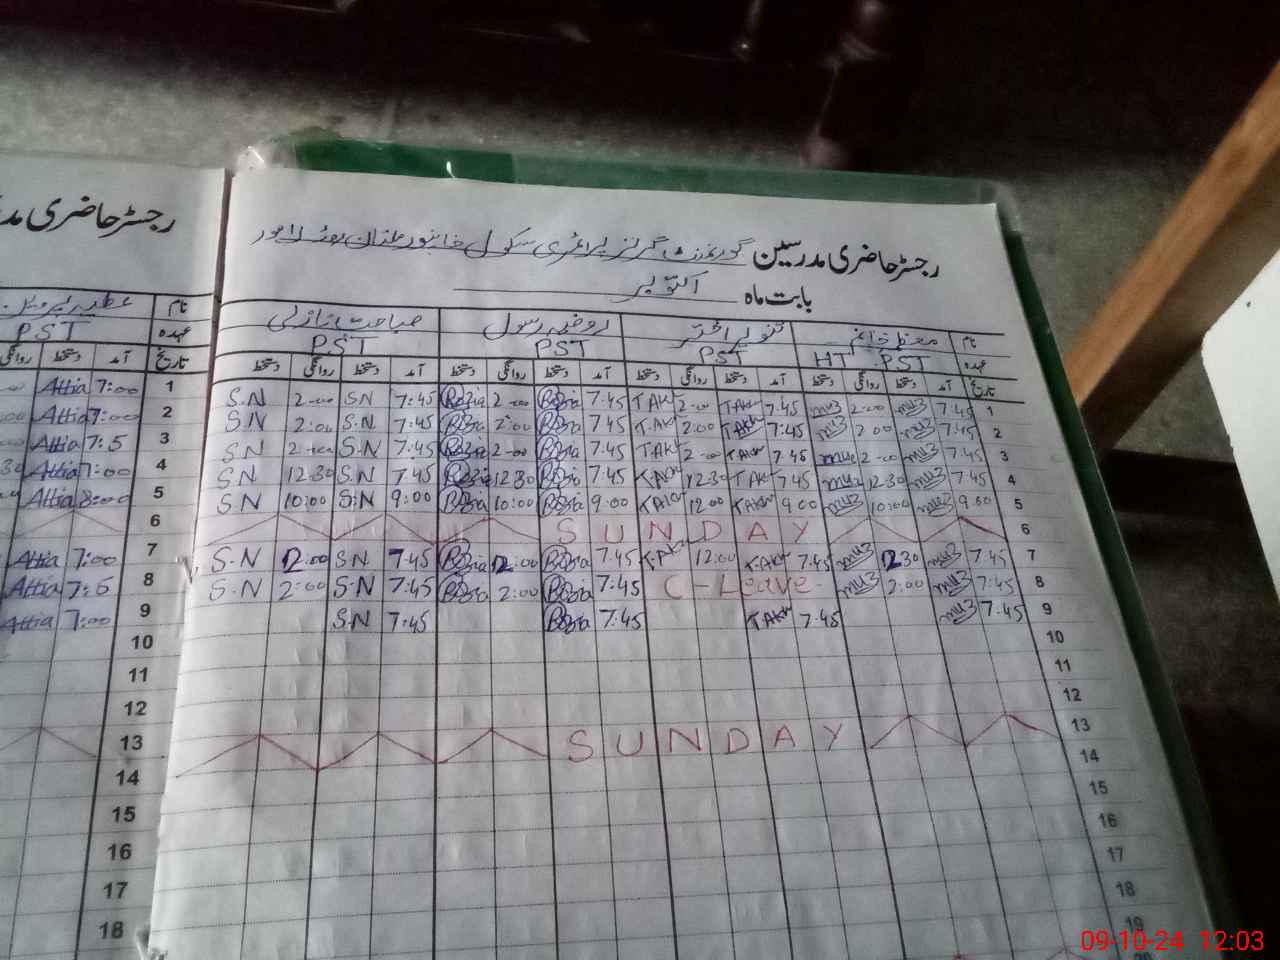 رجسٹر حاضری مدرسین گورنمنٹ گرلز پرائمری سکول ملتان روڈ لاہور
بابت ماہ اکتوبر
نام
عہدہ HT PST PST PST PST
تاریخ آمد دستخط روانگی دستخط آمد دستخط روانگی دستخط آمد دستخط روانگی دستخط آمد دستخط روانگی دستخط
S.N 2-00 S.N 7:45 Razia 2-00 Razia 7.45 TAKV 2-00 TAKV 7.45 muz 2.00 muz 7.45 1
S.N 2:00 S.N 7:45 Razia 2:00 Razia 7.45 T.AKV 2:00 TAKV 7:45 muz 2.00 muz 7.45 2
S.N 2-00 S.N 7:45 Razia 2-00 Razia 7.45 T.AKV 2-00 TAKV 7.45 muz 2-00 muz 7.45 3
S.N 12.30 S.N 7.45 Razia 12.30 Razia 7.45 TAKV 12.30 TAKV 7.45 muz 12.30 muz 7.45 4
S.N 10:00 S.N 9:00 Razia 10:00 Razia 9.00 TAKV 12.00 TAKV 9.00 muz 10:00 muz 9.00 5
SUNDAY 6
S.N 12:00 S.N 7.45 Razia 12:00 Razia 7.45 T.AKV 12:00 TAKV 7.45 muz 12.30 muz 7.45 7
S.N 2:00 S.N 7:45 Razia 2:00 Razia 7:45 C-Leave muz 2:00 muz 7:45 8
S.N 7:45 Razia 7:45 TAKV 7.45 muz 7.45 9
10
11
12
SUNDAY 13
14
15
16
17
18
19
رجسٹر حاضری
نام
PST عہدہ
روانگی دستخط آمد تاریخ
Attia 7:00 1
Attia 7:00 2
Attia 7:5 3
Attia 7:00 4
Attia 8:00 5
6
Attia 7:00 7
Attia 7:5 8
Attia 7:00 9
10
11
12
13
14
15
16
17
18
09-10-24 12:03